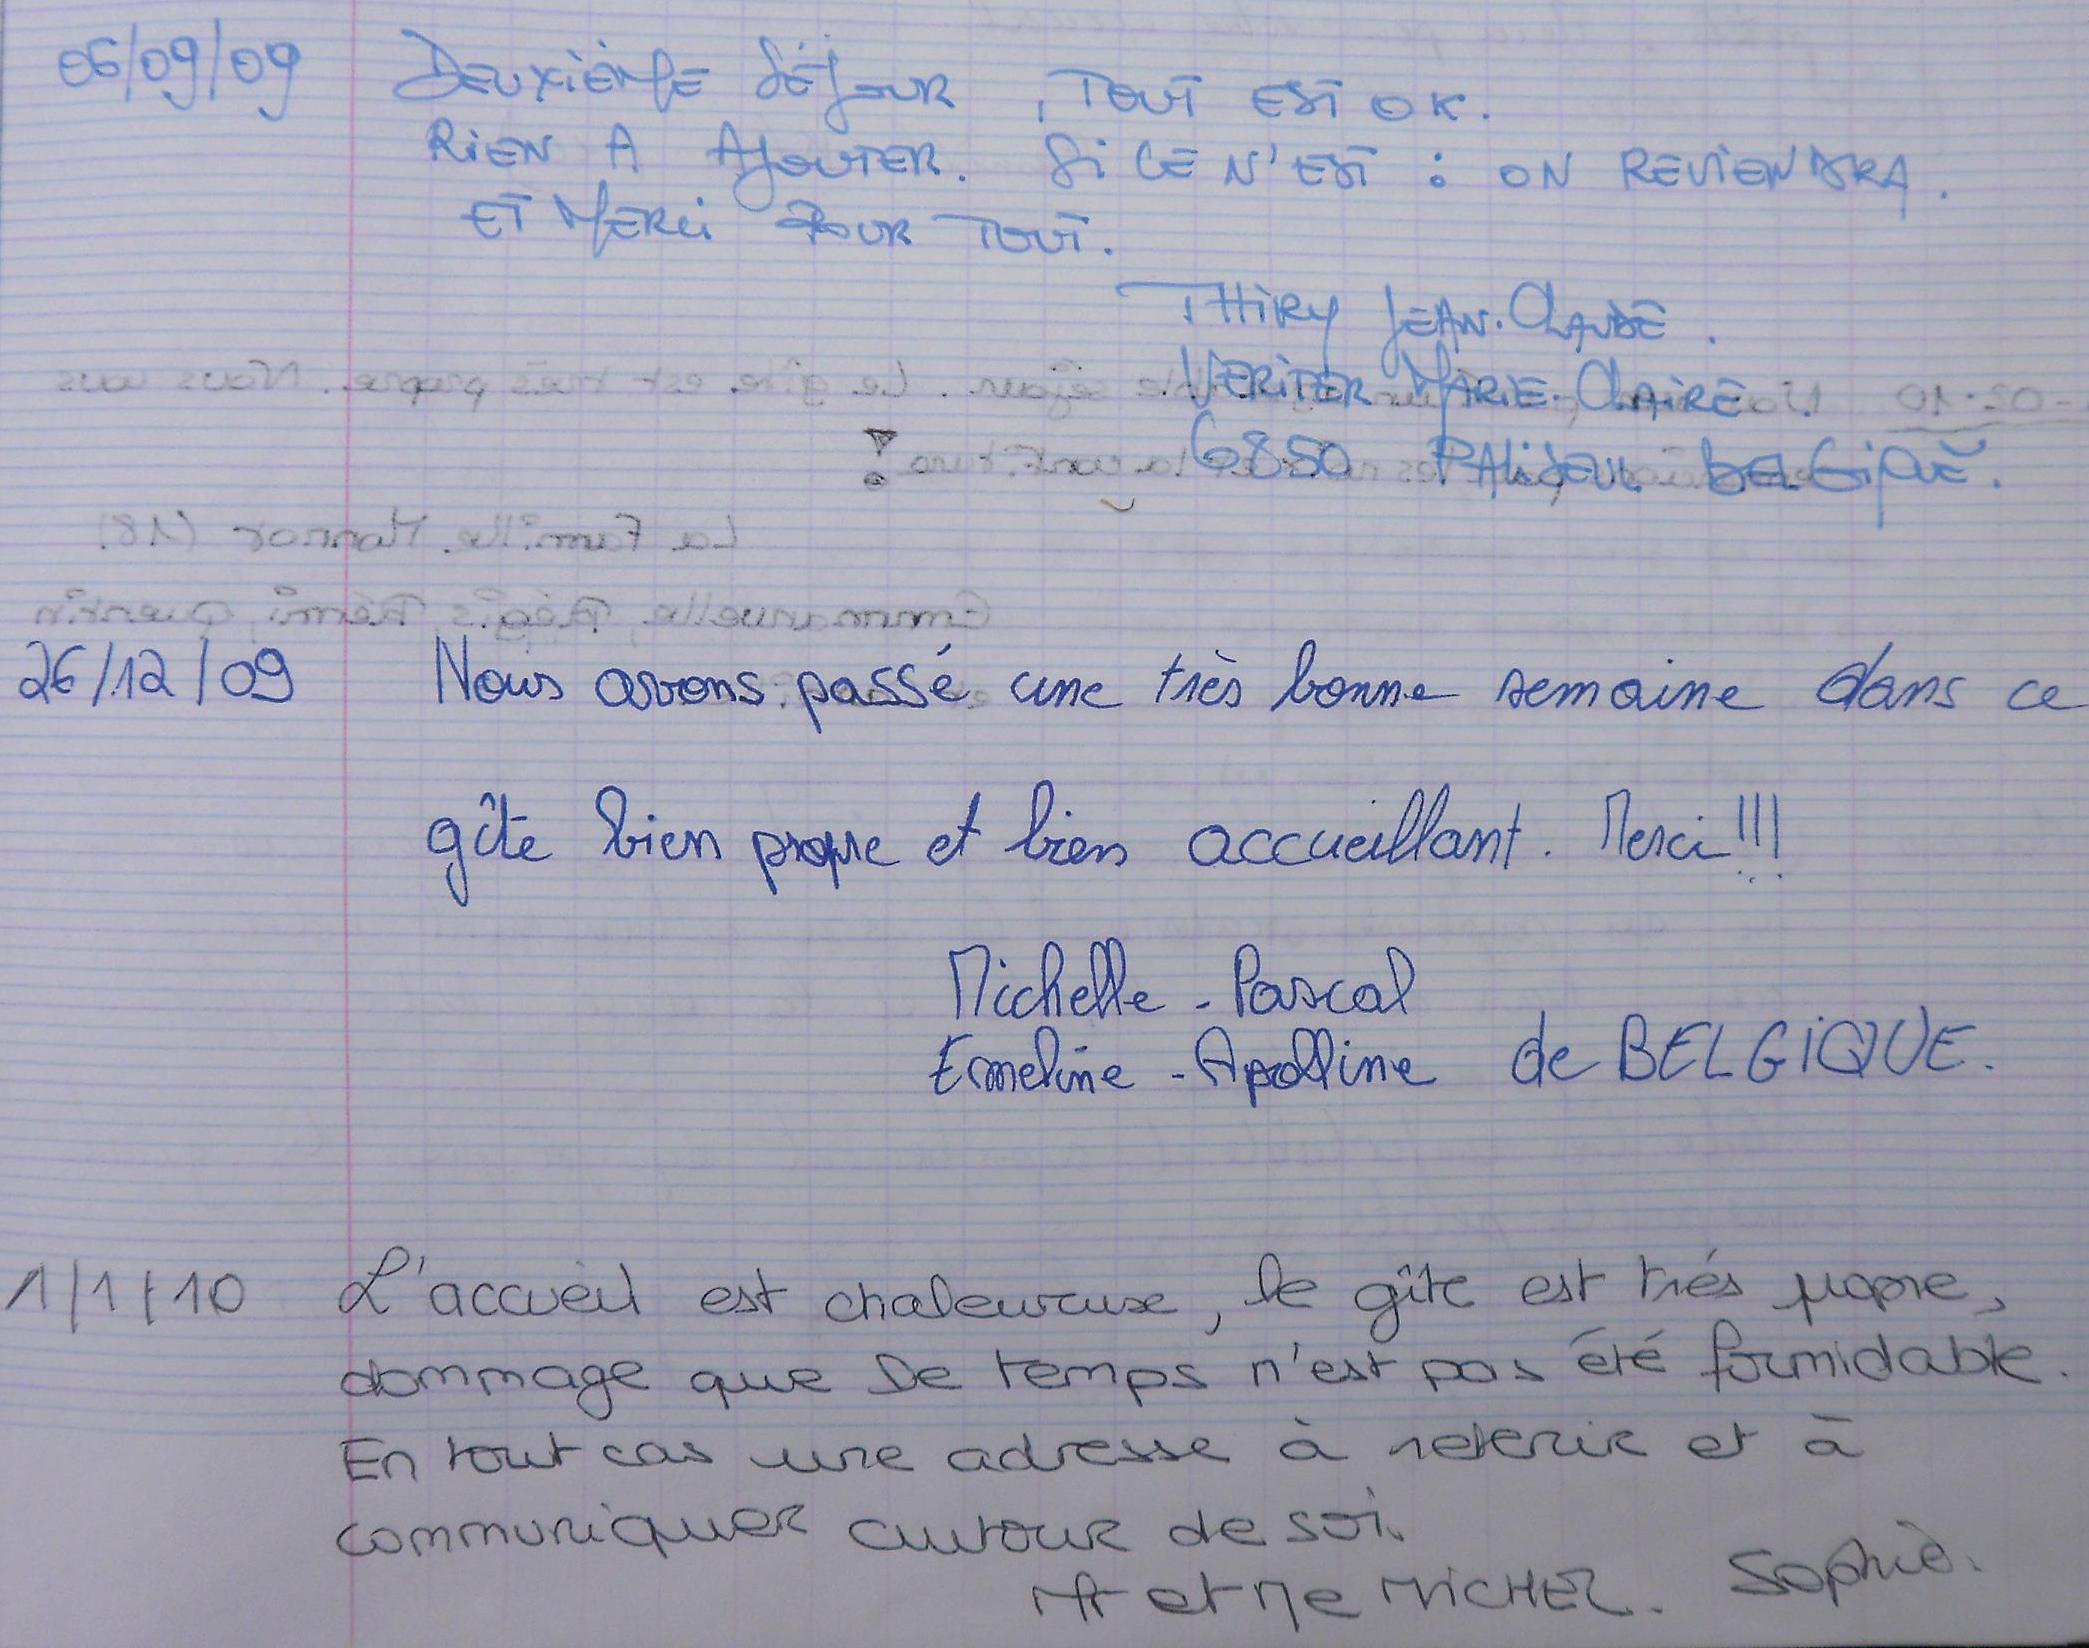 06/09/09 DEUXIÈME SÉJOUR, TOUT EST OK.
RIEN A AJOUTER. SI CE N'EST : ON REVIENDRA.
ET MERCI POUR TOUT.
THIRY JEAN-CLAUDE.
VERITER MARIE-CLAIRE.
6850 PALISEUL BELGIQUE.
26/12/09 Nous avons passé une très bonne semaine dans ce
gîte bien propre et bien accueillant. Merci!!!
Michelle - Pascal
Emeline - Apolline de BELGIQUE.
1/1/10 L'accueil est chaleureuse, le gîte est trés propre,
dommage que le temps n'est pas été formidable.
En tout cas une adresse à retenir et à
communiquer autour de soi.
Mr et Me MICHEL. Sophie.